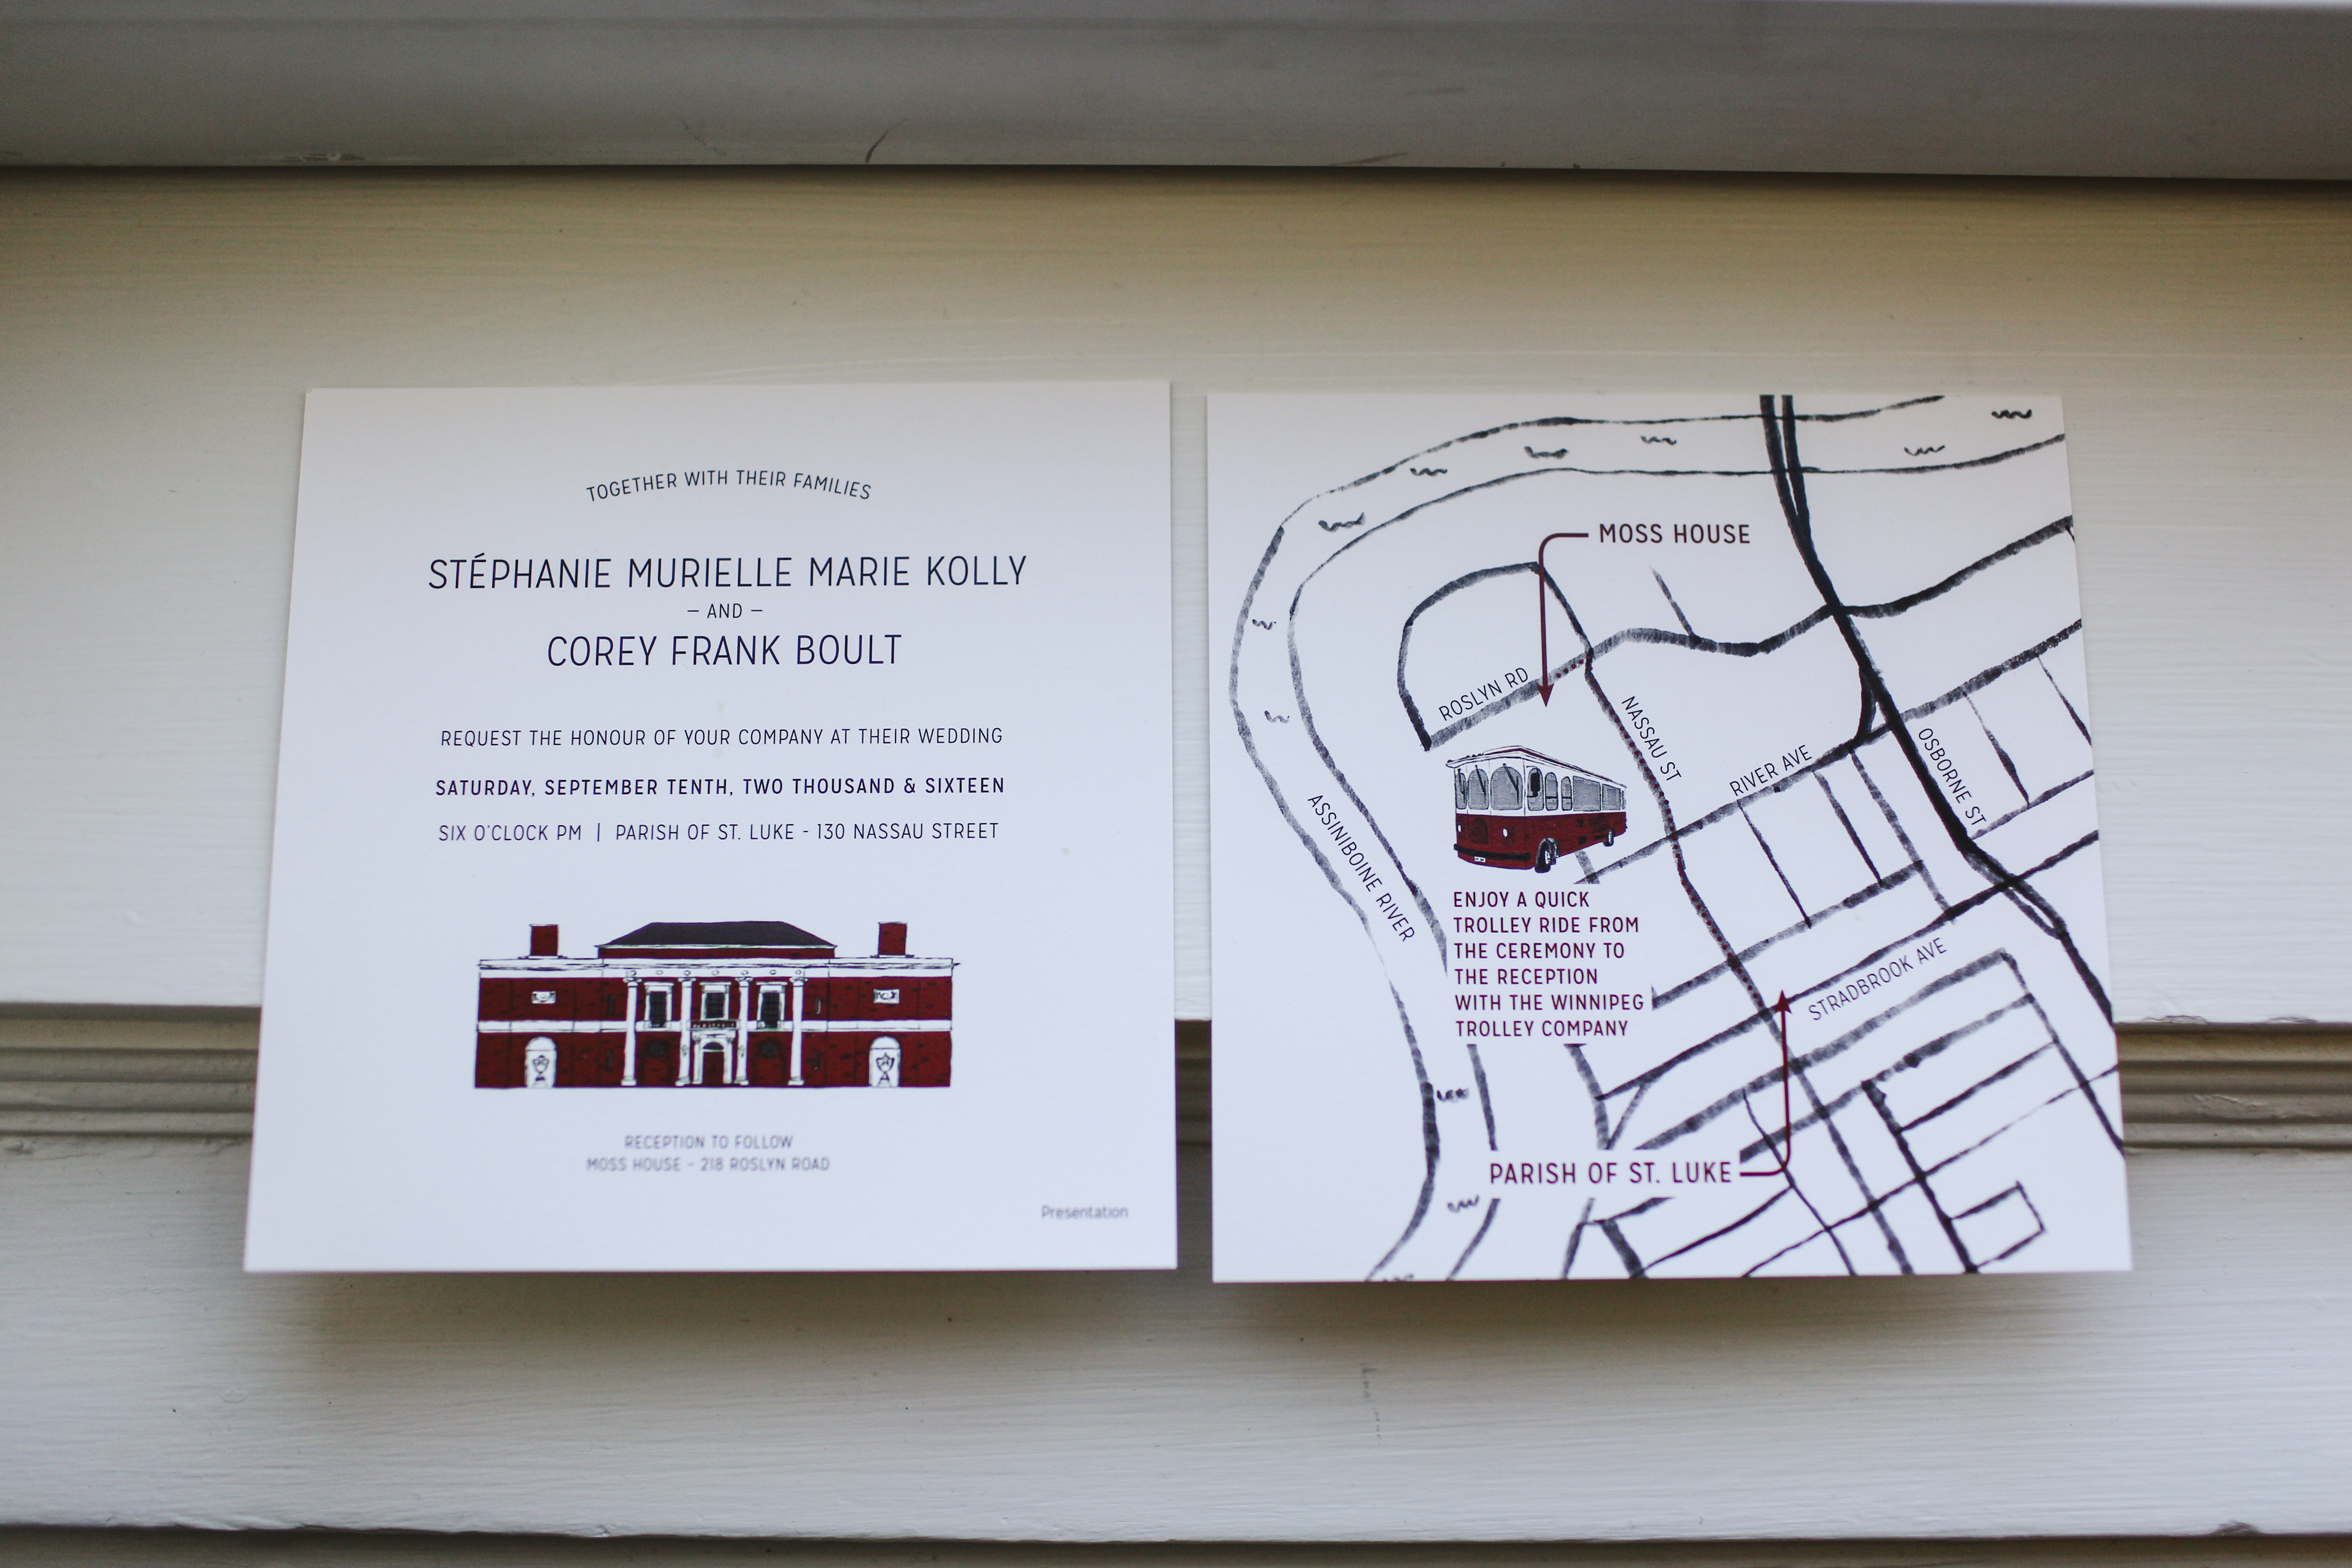 TOGETHER WITH THEIR FAMILIES
STÉPHANIE MURIELLE MARIE KOLLY
– AND –
COREY FRANK BOULT
REQUEST THE HONOUR OF YOUR COMPANY AT THEIR WEDDING
SATURDAY, SEPTEMBER TENTH, TWO THOUSAND & SIXTEEN
SIX O'CLOCK PM | PARISH OF ST. LUKE - 130 NASSAU STREET
RECEPTION TO FOLLOW
MOSS HOUSE - 218 ROSLYN ROAD
Presentation
MOSS HOUSE
ROSLYN RD
NASSAU ST
RIVER AVE
OSBORNE ST
ASSINIBOINE RIVER
ENJOY A QUICK
TROLLEY RIDE FROM
THE CEREMONY TO
THE RECEPTION
WITH THE WINNIPEG
TROLLEY COMPANY
STRADBROOK AVE
PARISH OF ST. LUKE